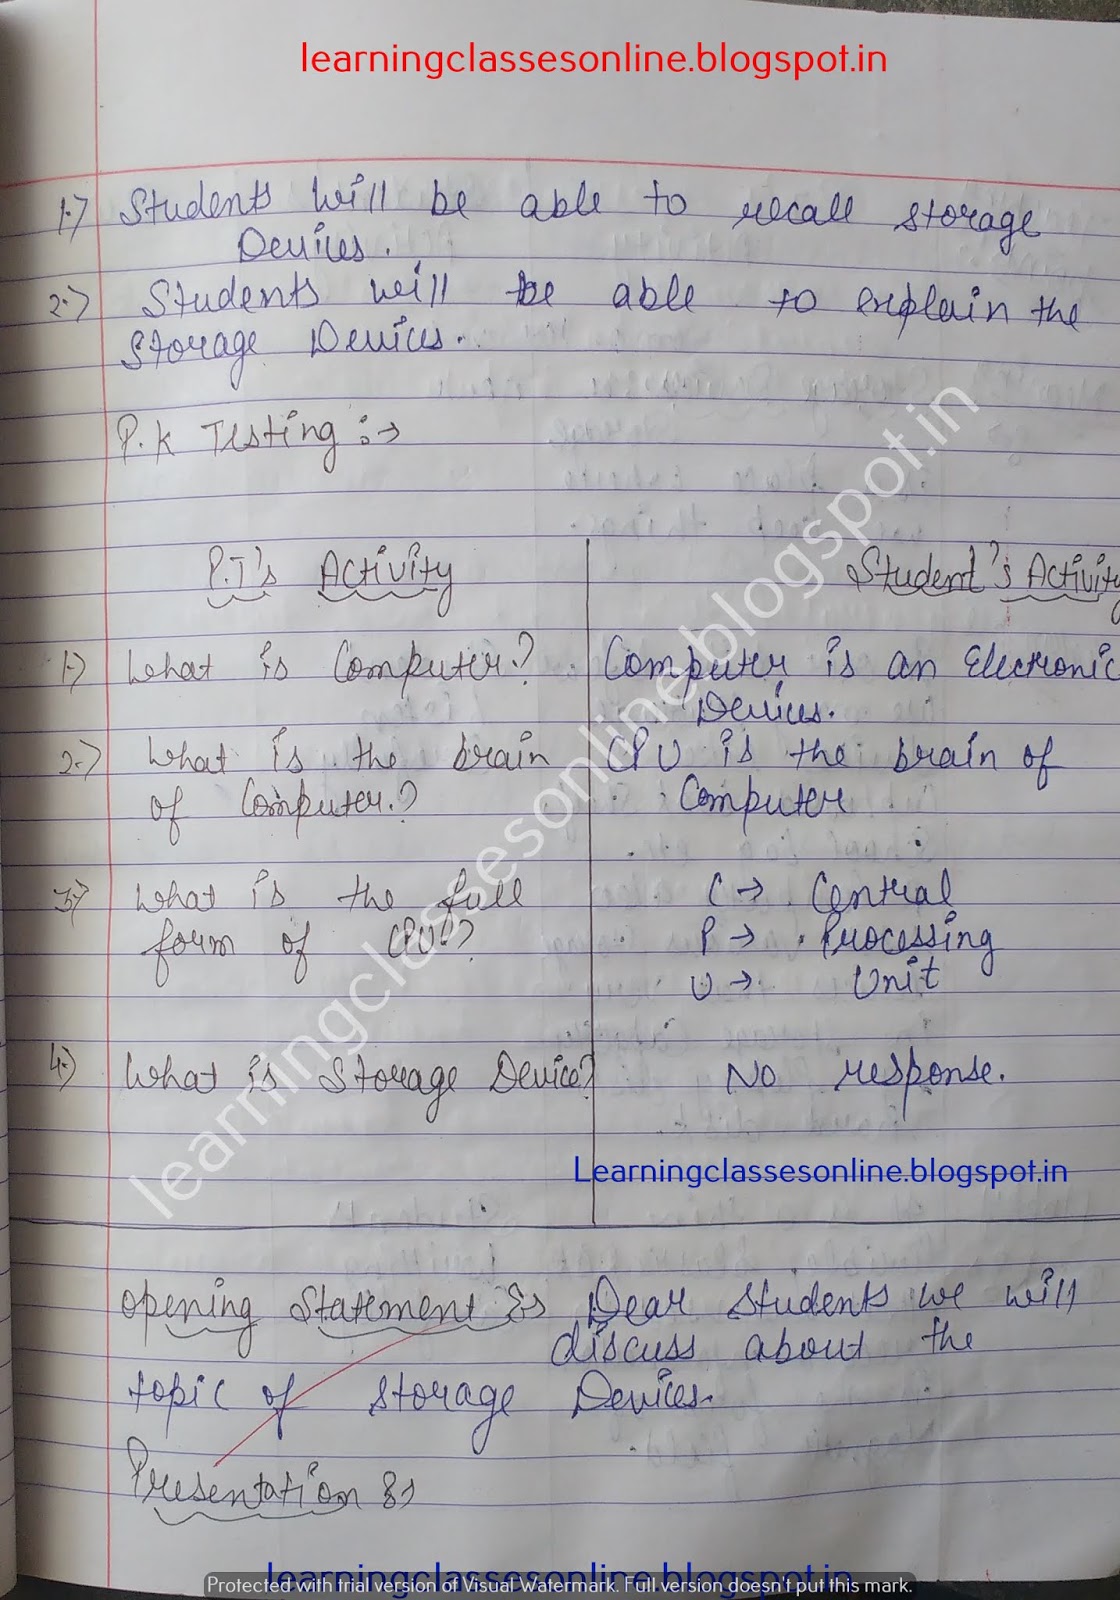 learningclassesonline.blogspot.in
1.) Students will be able to recall storage
Devices.
2.) Students will be able to explain the
storage Devices.
P.K Testing :->
P.T's Activity Student's Activity
1.) What is Computer? Computer is an Electronic
Devices.
2.) What is the brain CPU is the brain of
of Computer.? Computer
3.) What is the full C -> Central
form of CPU? P -> Processing
U -> Unit
4.) What is Storage Device? No response.
learningclassesonline.blogspot.in
Learningclassesonline.blogspot.in
Opening Statement :> Dear Students we will
discuss about the
topic of storage Devices.
Presentation :>
learningclassesonline.blogspot.in
Protected with trial version of Visual Watermark. Full version doesn't put this mark.